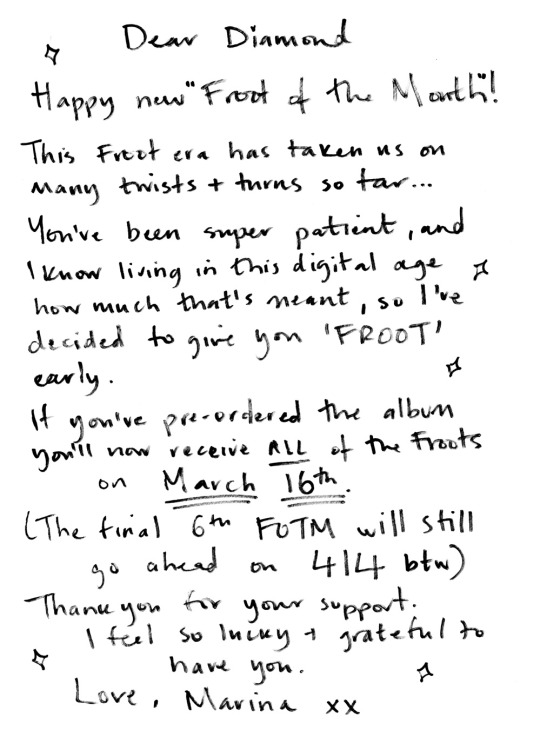 Dear Diamond
Happy new "Froot of the Month"!
This Froot era has taken us on
many twists + turns so far...
You've been super patient, and
I know living in this digital age
how much that's meant, so I've
decided to give you 'FROOT'
early.
If you've pre-ordered the album
you'll now receive ALL of the Froots
on March 16th.
(The final 6th FOTM will still
go ahead on 4/4 btw)
Thank you for your support.
I feel so lucky + grateful to
have you.
Love, Marina xx